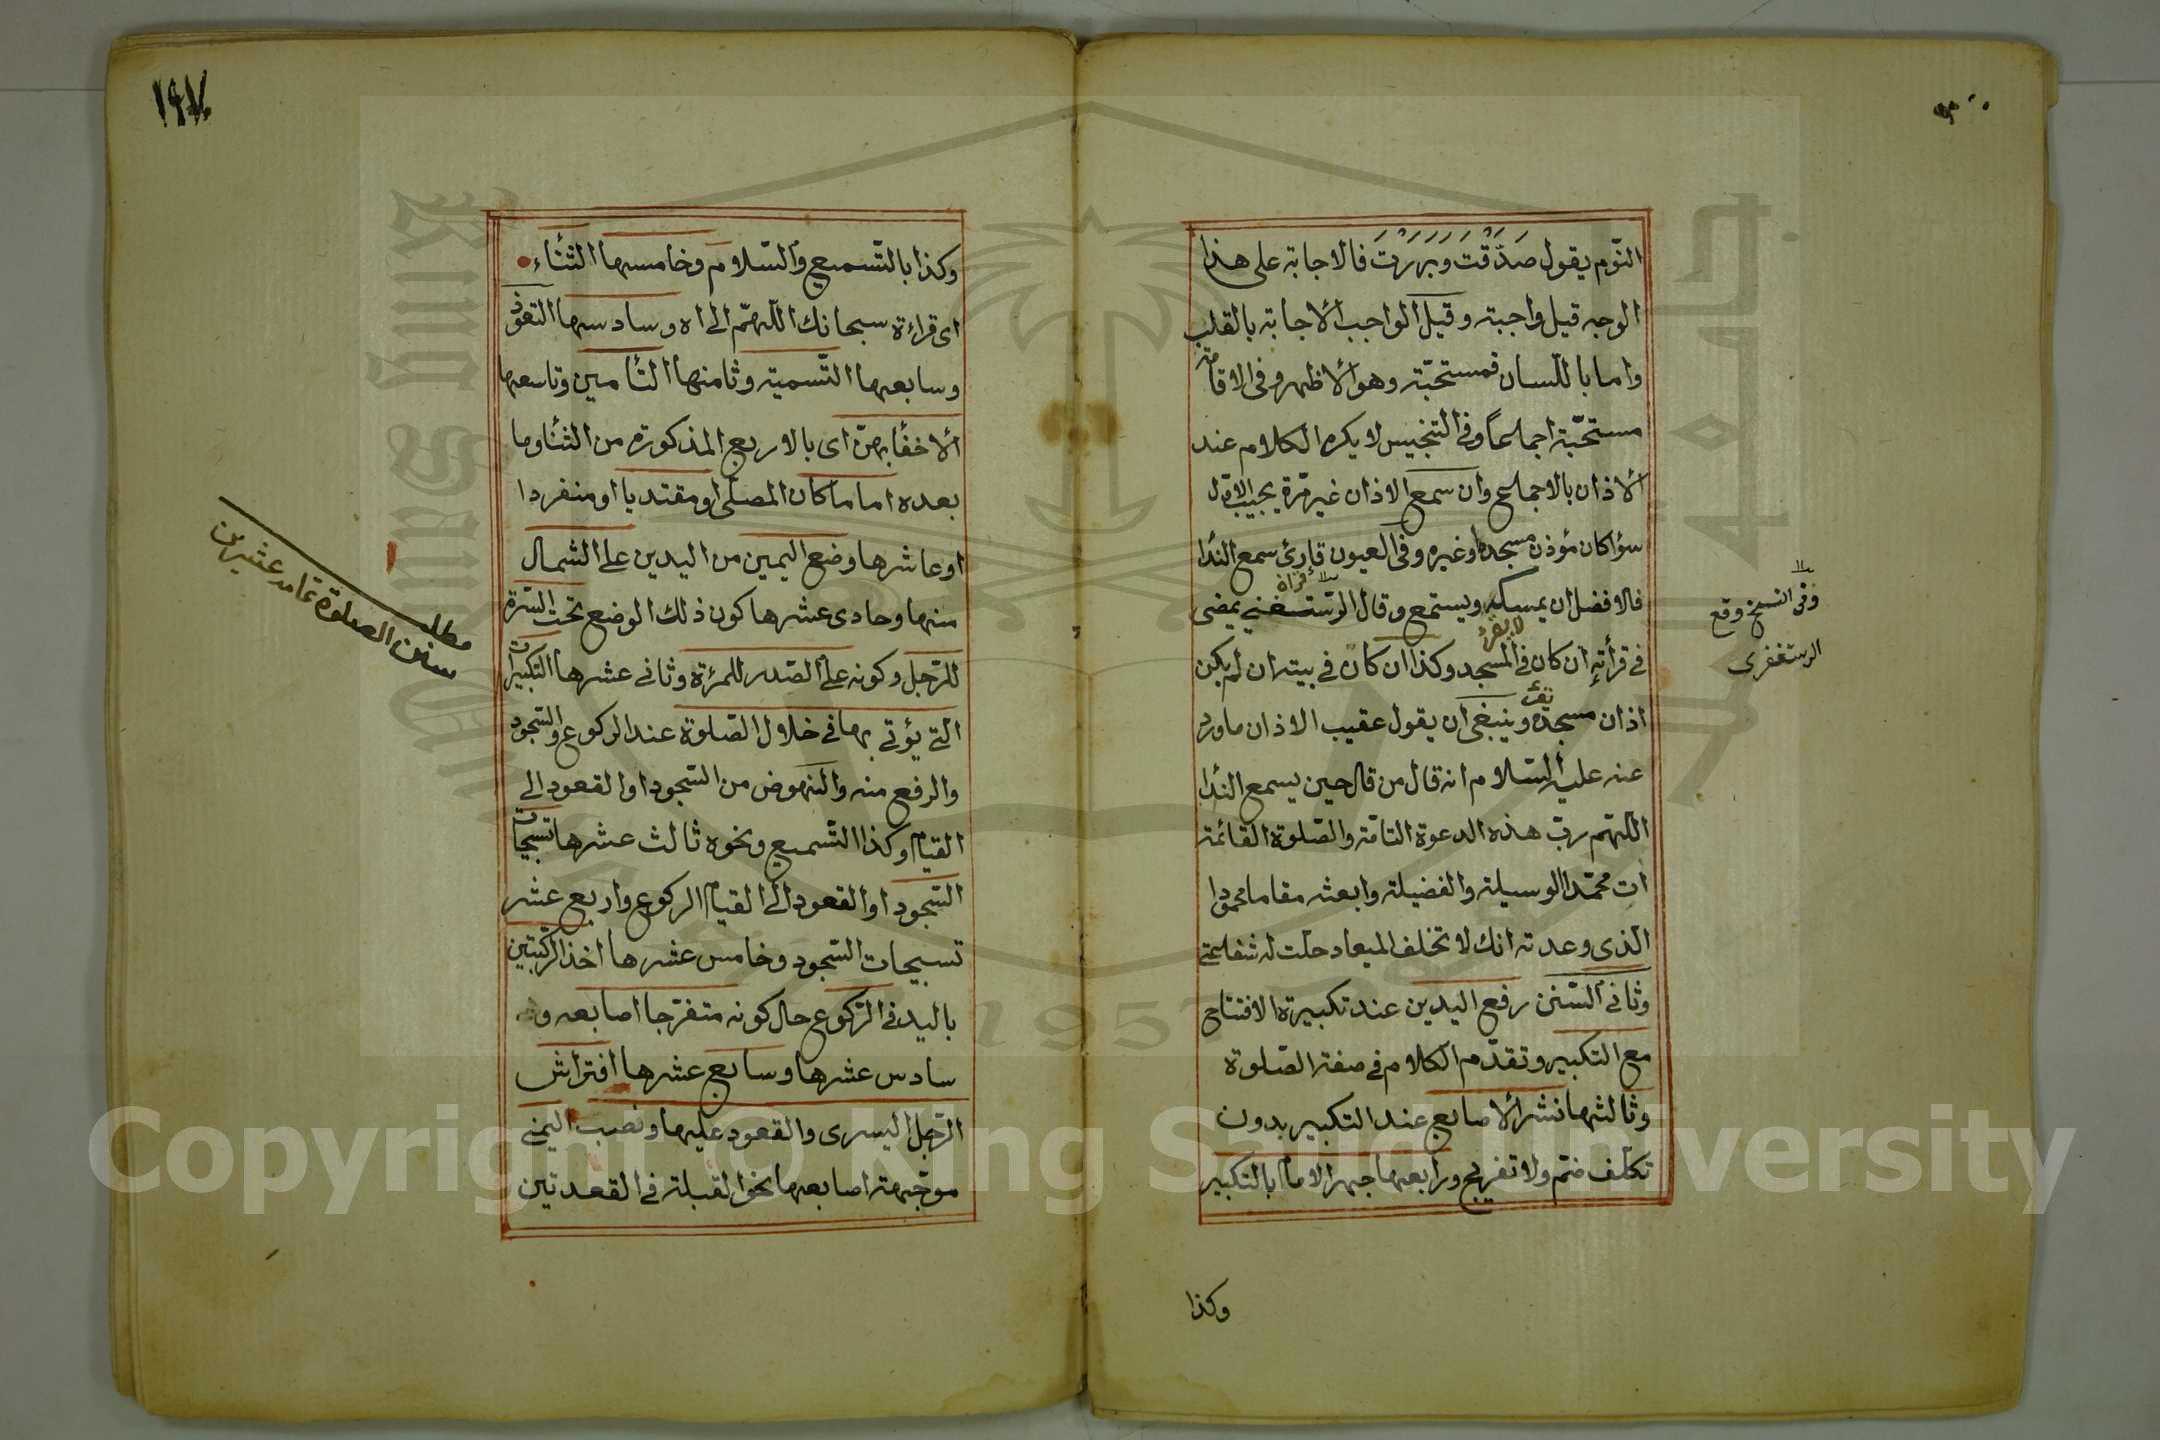 النوم يقول صَدَقْتَ وَبَرَرْتَ فالاجابة على هذا
الوجه قيل واجبة وقيل الواجب الاجابة بالقلب
واما باللسان فمستحبّة وهو الاظهر وفي الاقامة
مستحبّة اجماعًا وفي التجنيس لا يكره الكلام عند
الاذان بالاجماع وان سمع الاذان غير مرّة يجيب الاول
سوٓا كان مؤذن مسجده او غيره وفي العيون قارئ سمع الندا
فالافضل ان يمسك ويستمع وقال الرستغفني يمضى
في قرأته ان كان في المسجد وكذا ان كان في بيته ان لم يكن
اذان مسجده وينبغى ان يقول عقيب الاذان ما ورد
عنه عليه السّلام انه قال من قال حين يسمع الندا
اللّهمّ ربّ هذه الدعوة التامّة والصّلوة القائمة
اٰت محمّدا الوسيلة والفضيلة وابعثه مقاما محمودا
الّذى وعدته انك لا تخلف الميعاد حلّت له شفاعتى
وثاني السّنن رفع اليدين عند تكبيرة الافتتاح
مع التكبير وتقدّم الكلام في صفة الصّلوة
وثالثها نشر الاصابع عند التكبير بدون
تكلّف ضمّ ولا تفريج ورابعها جهر الامام بالتكبير
وكذا
وفي النسخ وقع
الرستغفرى
١٩٧
وكذا بالتّسميع والسّلام وخامسها الثّناء
اى قراءة سبحانك اللّهمّ الى اه وسادسها التعوذ
وسابعها التّسمية وثامنها التّأمين وتاسعها
الاخفٓا بهنّ اى بالاربع المذكورة من الثّنا وما
بعده اماما كان المصلّى او مقتديا او منفردا
اوعاشرها وضع اليمين من اليدين على الشمال
منها وحادى عشرها كون ذلك الوضع تحت السّرة
للرّجل وكونه على الصّدر للمرٔة وثاني عشرها التكبيرات
الّتي يؤتى بها في خلال الصّلوة عند الركوع والسّجود
والرفع منه والنهوض من السّجود او القعود الى
القيام وكذا التّسميع ونحوه ثالث عشرها تسبيحات
السّجود او القعود الى القيام الركوع واربع عشر
تسبيحات السّجود وخامس عشرها اخذ الرّكبتين
باليد في الرّكوع حال كونه متفرّجا اصابعه و
سادس عشرها وسابع عشرها افتراش
الرّجل اليسرى والقعود عليها ونصب اليمنى
موجّهة اصابعها نحو القبلة في القعدتين
مطلب
سنن الصلوة
King Saud University
1957
Copyright © King Saud University